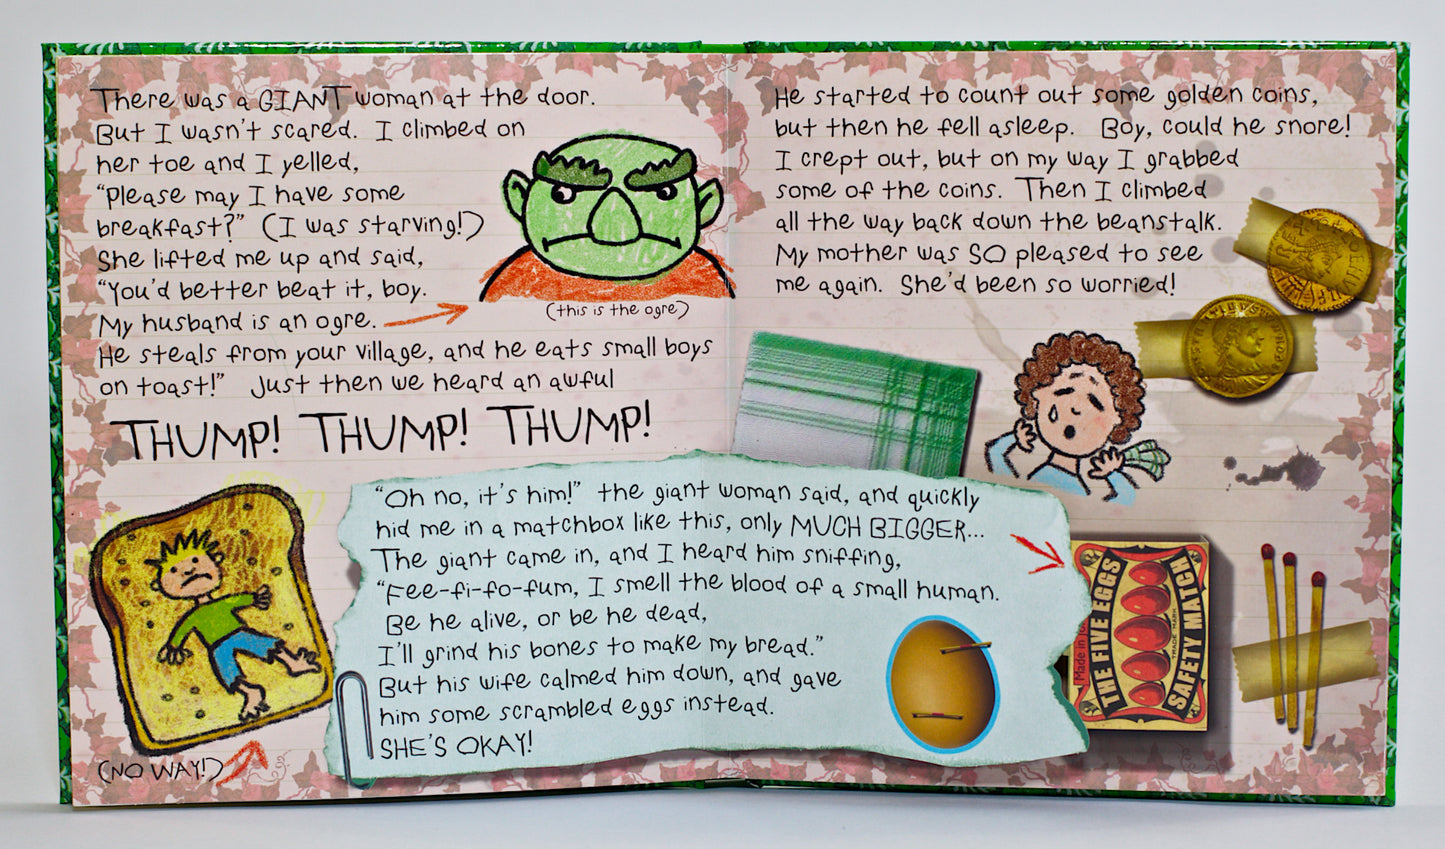 There was a GIANT woman at the door.
But I wasn't scared. I climbed on
her toe and I yelled,
"Please may I have some
breakfast?" (I was starving!)
She lifted me up and said,
"You'd better beat it, boy.
My husband is an ogre.
(this is the ogre)
He steals from your village, and he eats small boys
on toast!" Just then we heard an awful
THUMP! THUMP! THUMP!
(NO WAY!)
"Oh no, it's him!" the giant woman said, and quickly
hid me in a matchbox like this, only MUCH BIGGER...
The giant came in, and I heard him sniffing,
"Fee-fi-fo-fum, I smell the blood of a small human.
Be he alive, or be he dead,
I'll grind his bones to make my bread."
But his wife calmed him down, and gave
him some scrambled eggs instead.
SHE'S OKAY!
He started to count out some golden coins,
but then he fell asleep. Boy, could he snore!
I crept out, but on my way I grabbed
some of the coins. Then I climbed
all the way back down the beanstalk.
My mother was SO pleased to see
me again. She'd been so worried!
Made in
THE FIVE EGGS
TRADE MARK
SAFETY MATCH